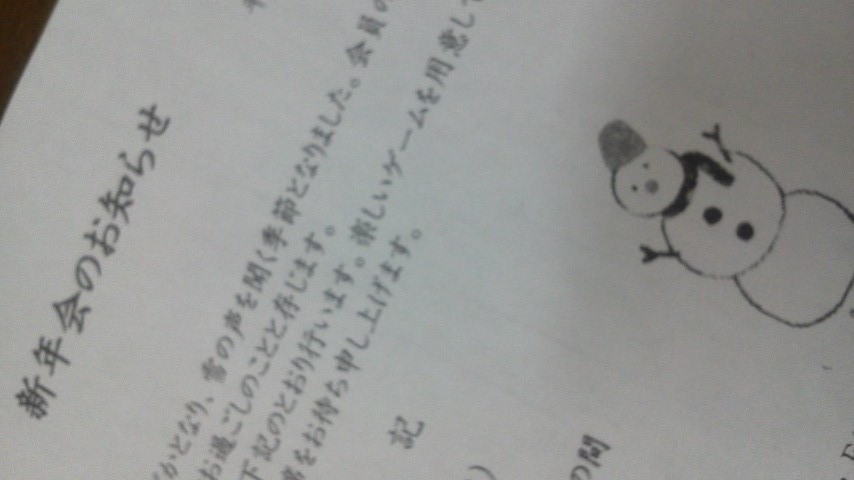 新年会のお知らせ
かとなり、雪の声を聞く季節となりました。会員の
お過ごしのことと存じます。
下記のとおり行います。楽しいゲームを用意して
席をお待ち申し上げます。
記
の間